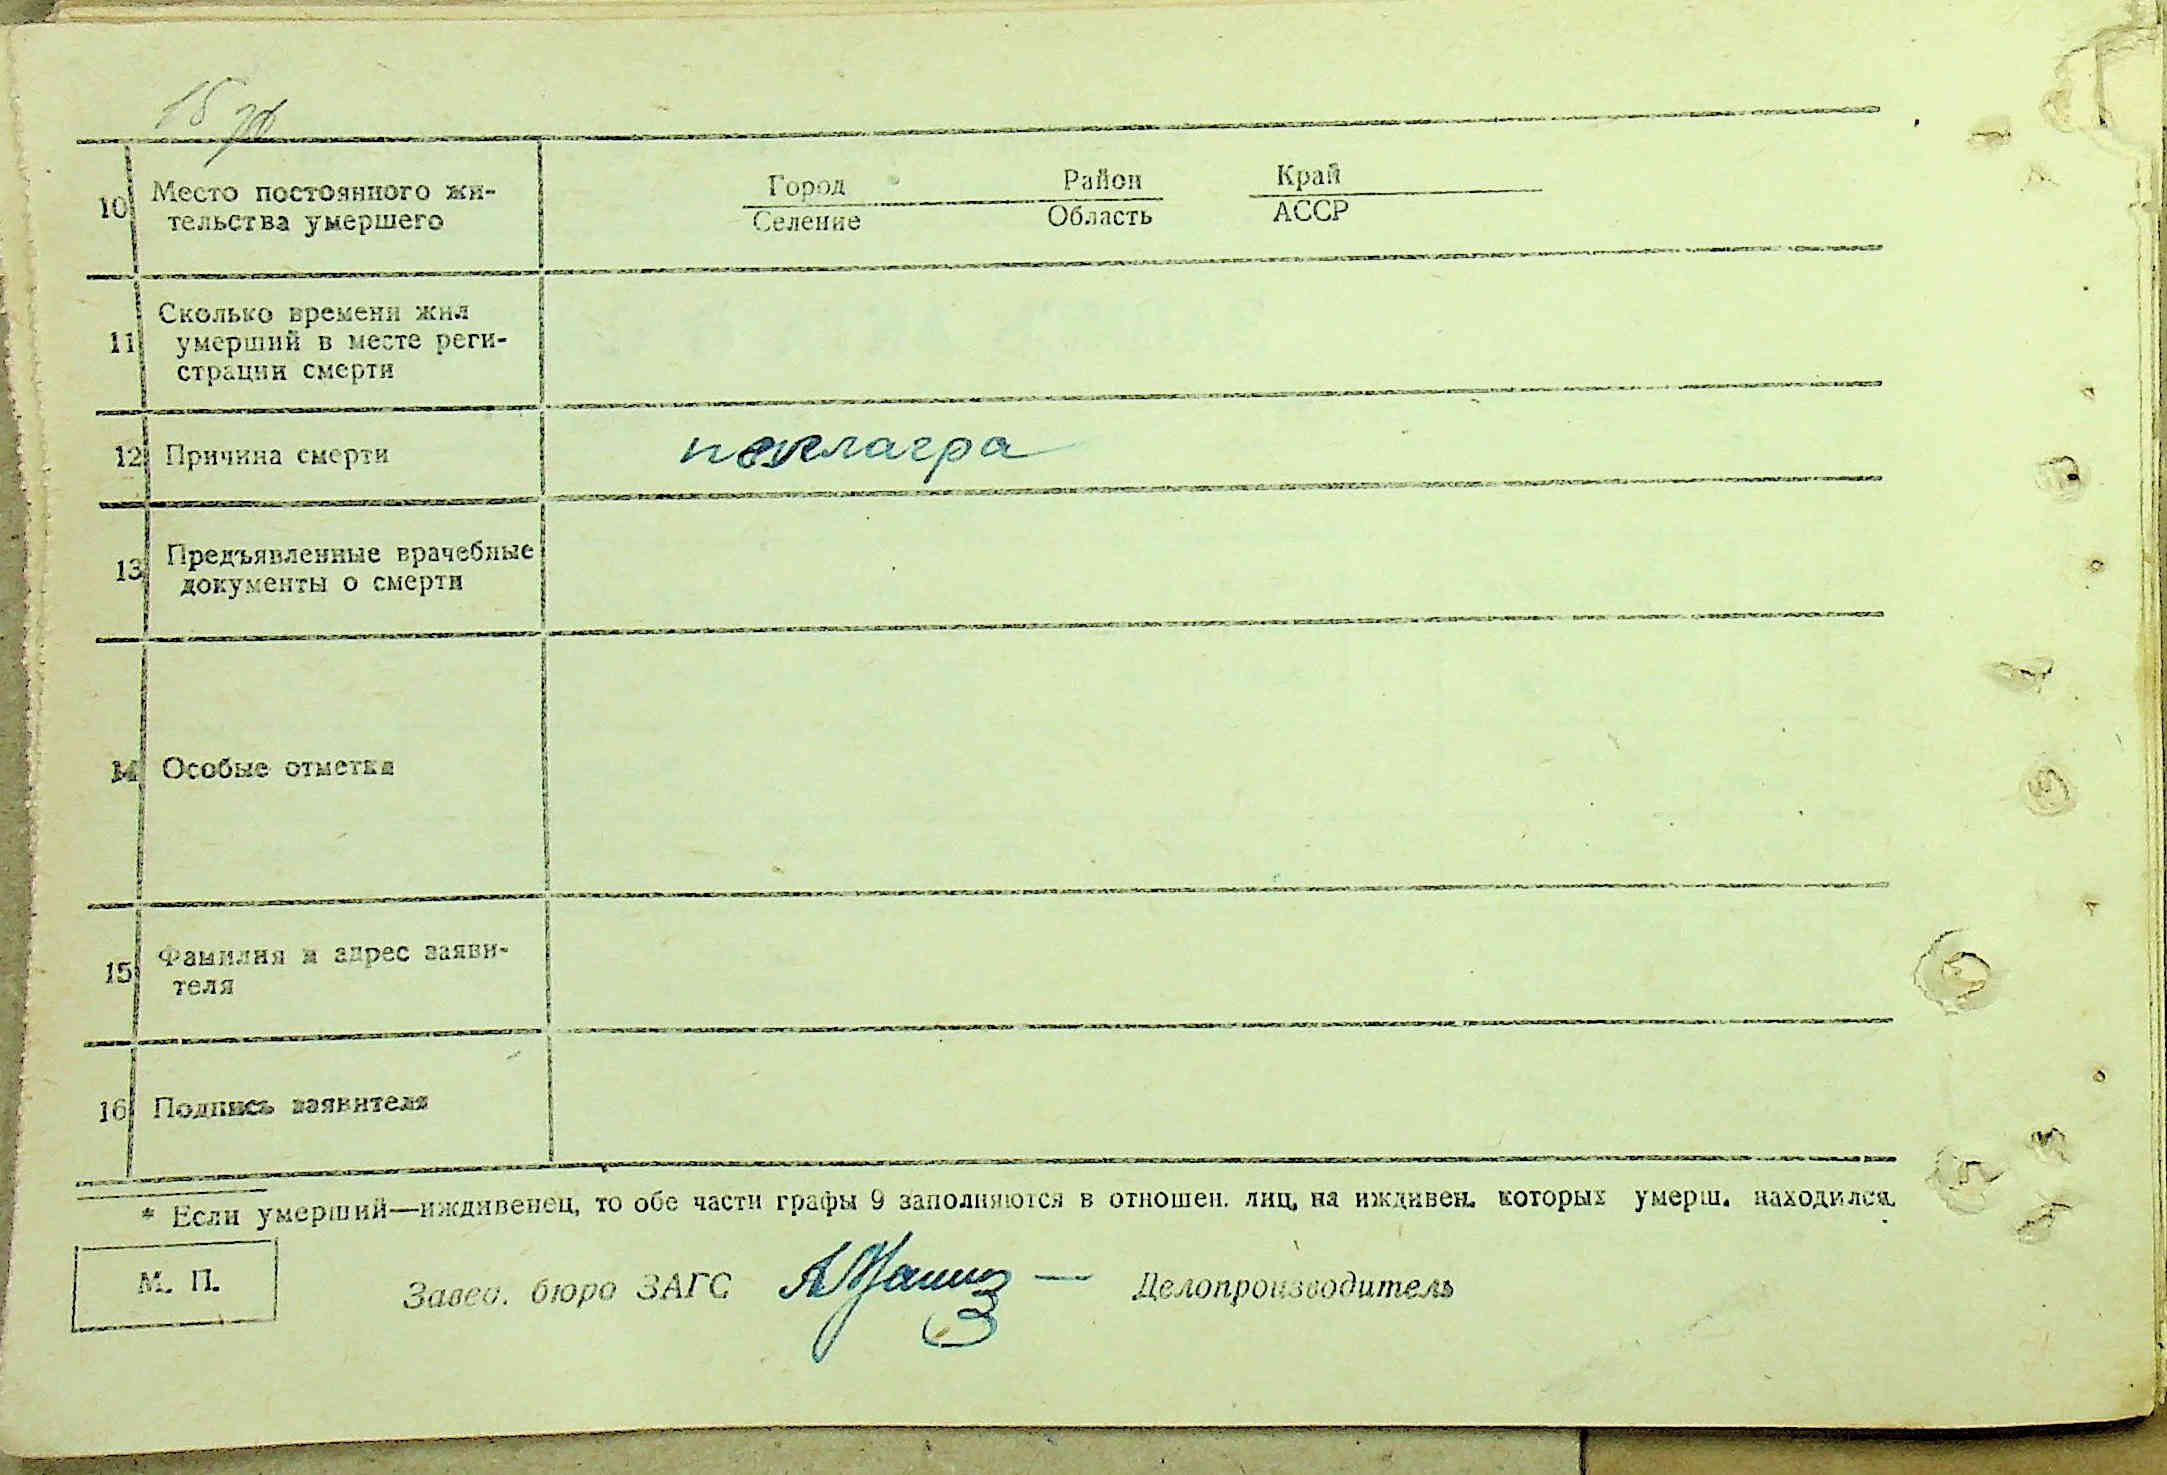 10 Место постоянного жи-
тельства умершего
Город Район Край
Селение Область АССР
11 Сколько времени жил
умерший в месте реги-
страции смерти
12 Причина смерти пеллагра
13 Предъявленные врачебные
документы о смерти
14 Особые отметки
15 Фамилия и адрес заяви-
теля
16 Подпись заявителя
* Если умерший—иждивенец, то обе части графы 9 заполняются в отношен. лиц, на иждивен. которых умерш. находился.
М. П.
Завед. бюро ЗАГС — Делопроизводитель